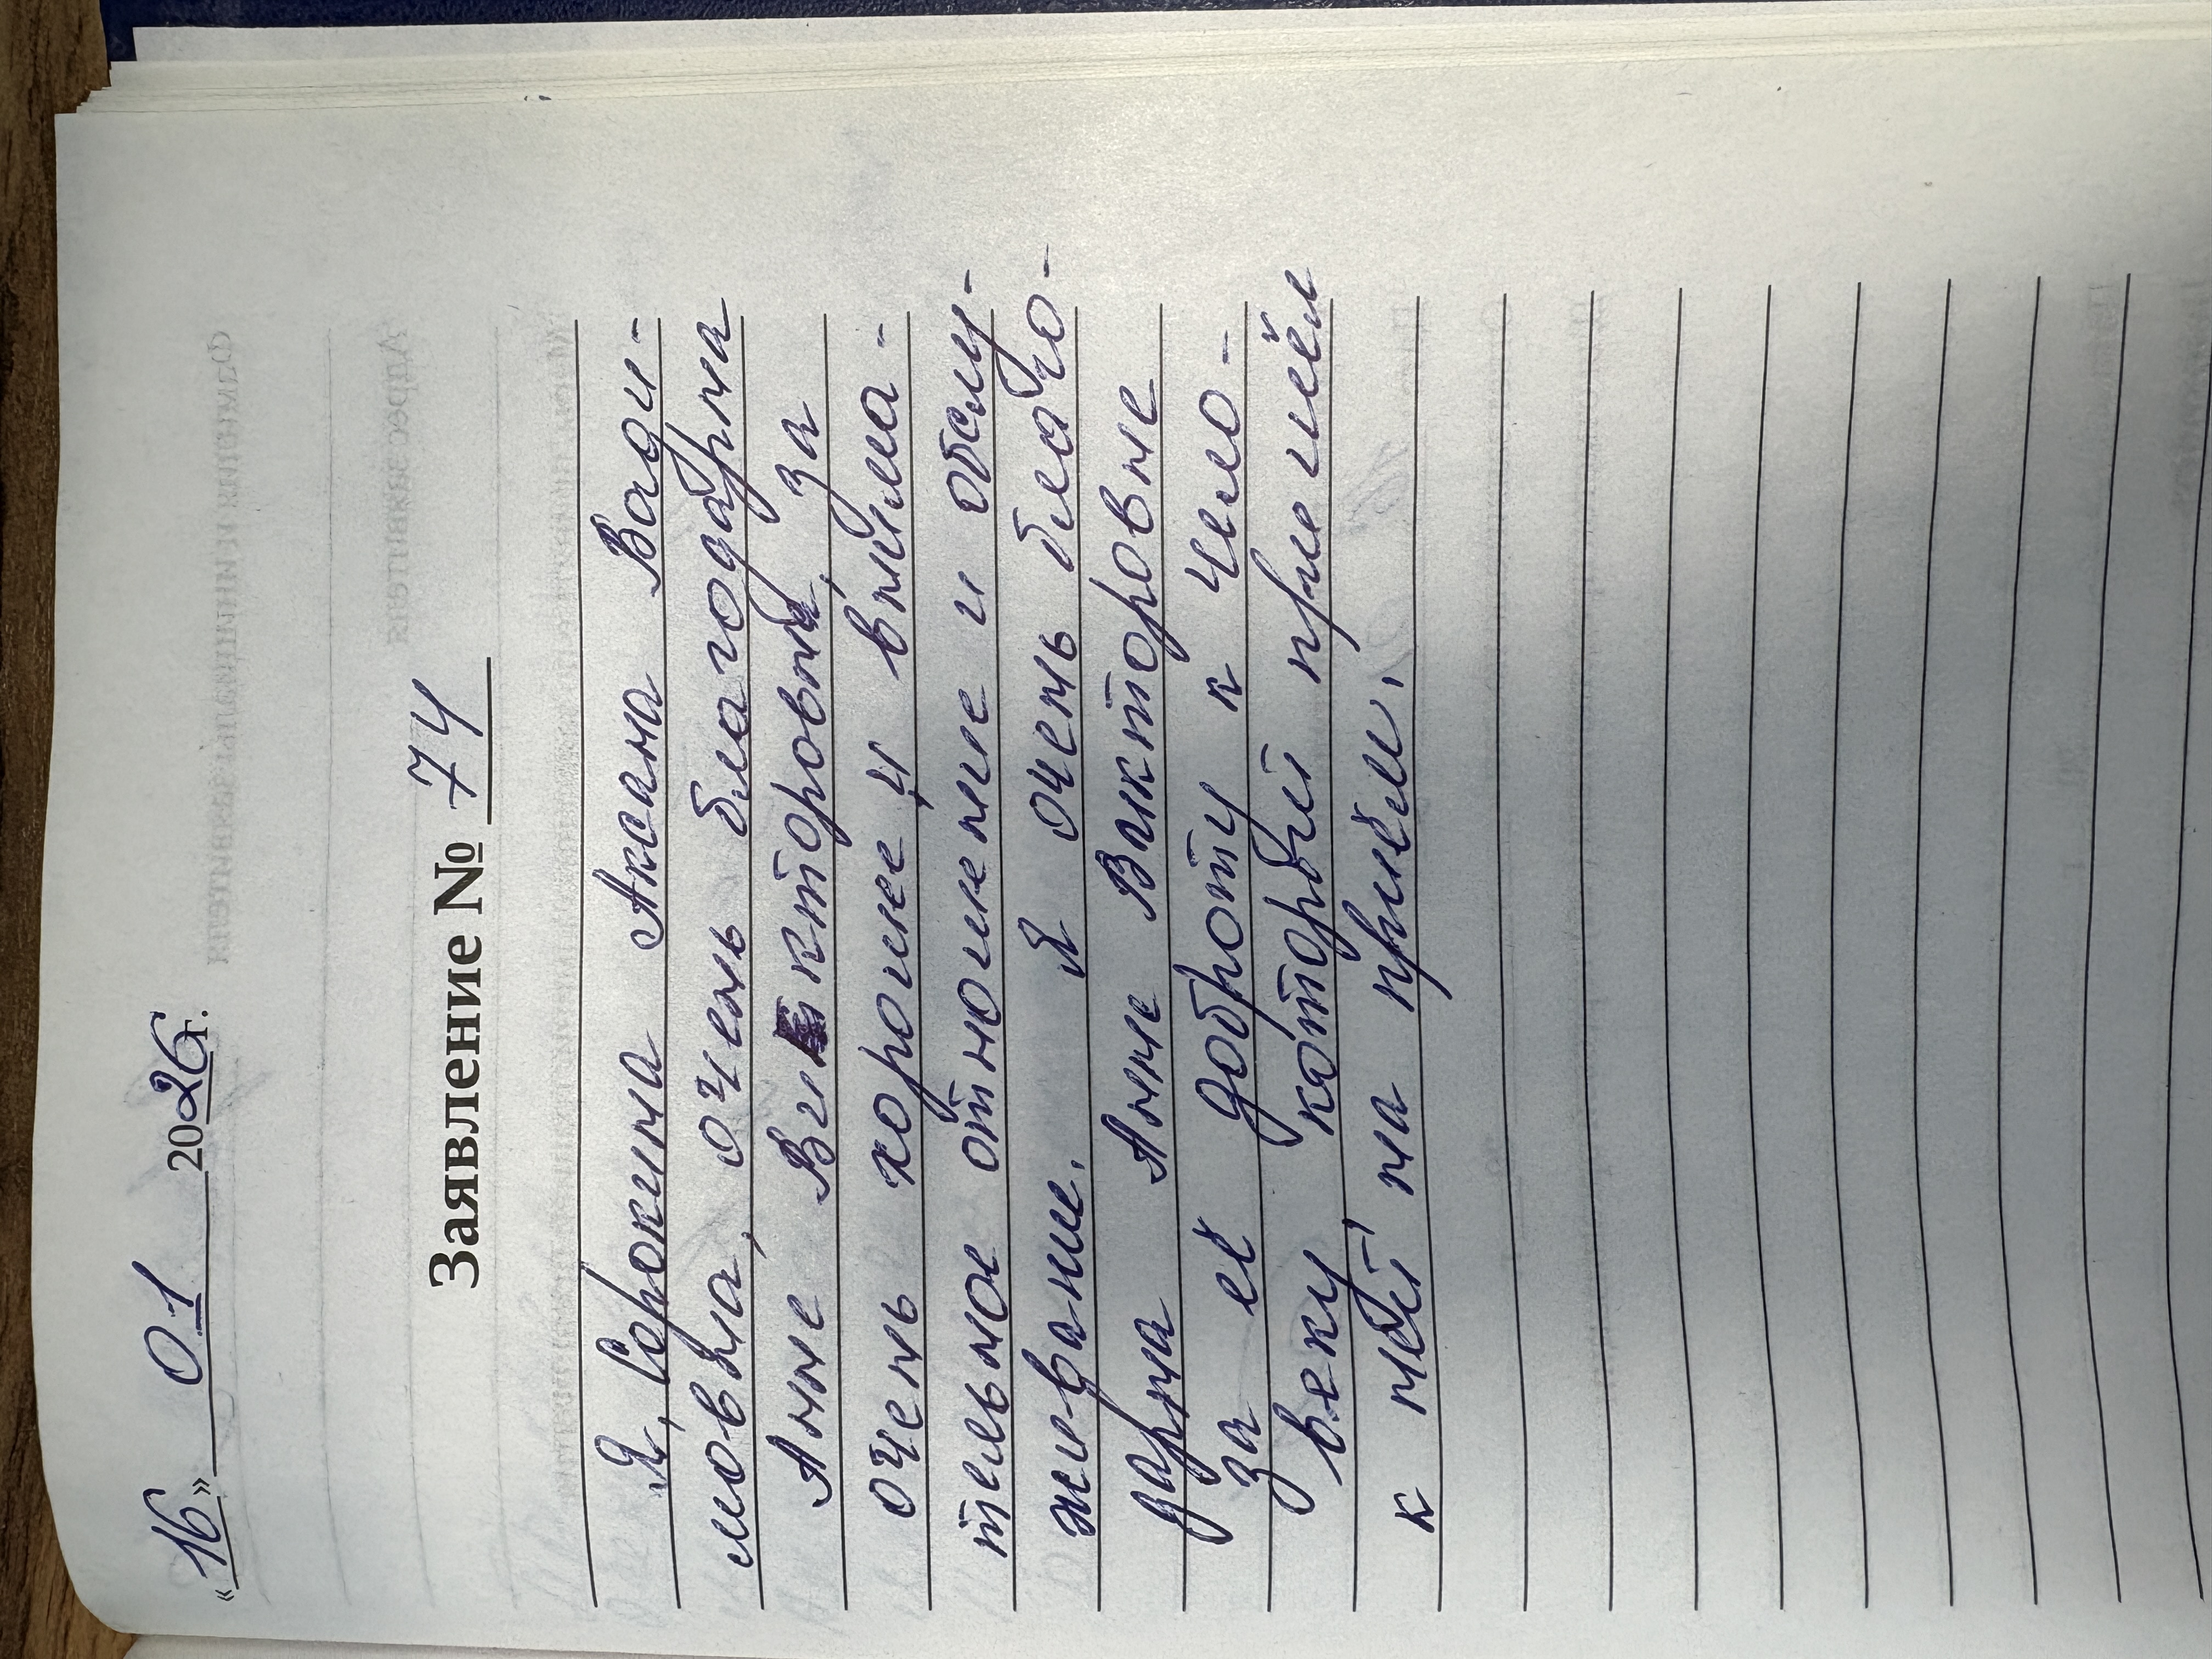 «16» 01 2026г.
Заявление № 74
Я, Сорокина Аксана Вади-
мовна, очень благодарна
Анне Викторовне, за
очень хорошее и внима-
тельное отношение и обслу-
живание. Я очень благо-
дарна Анне Викторовне
за её доброту к чело-
веку, который пришёл
к ней на приём.